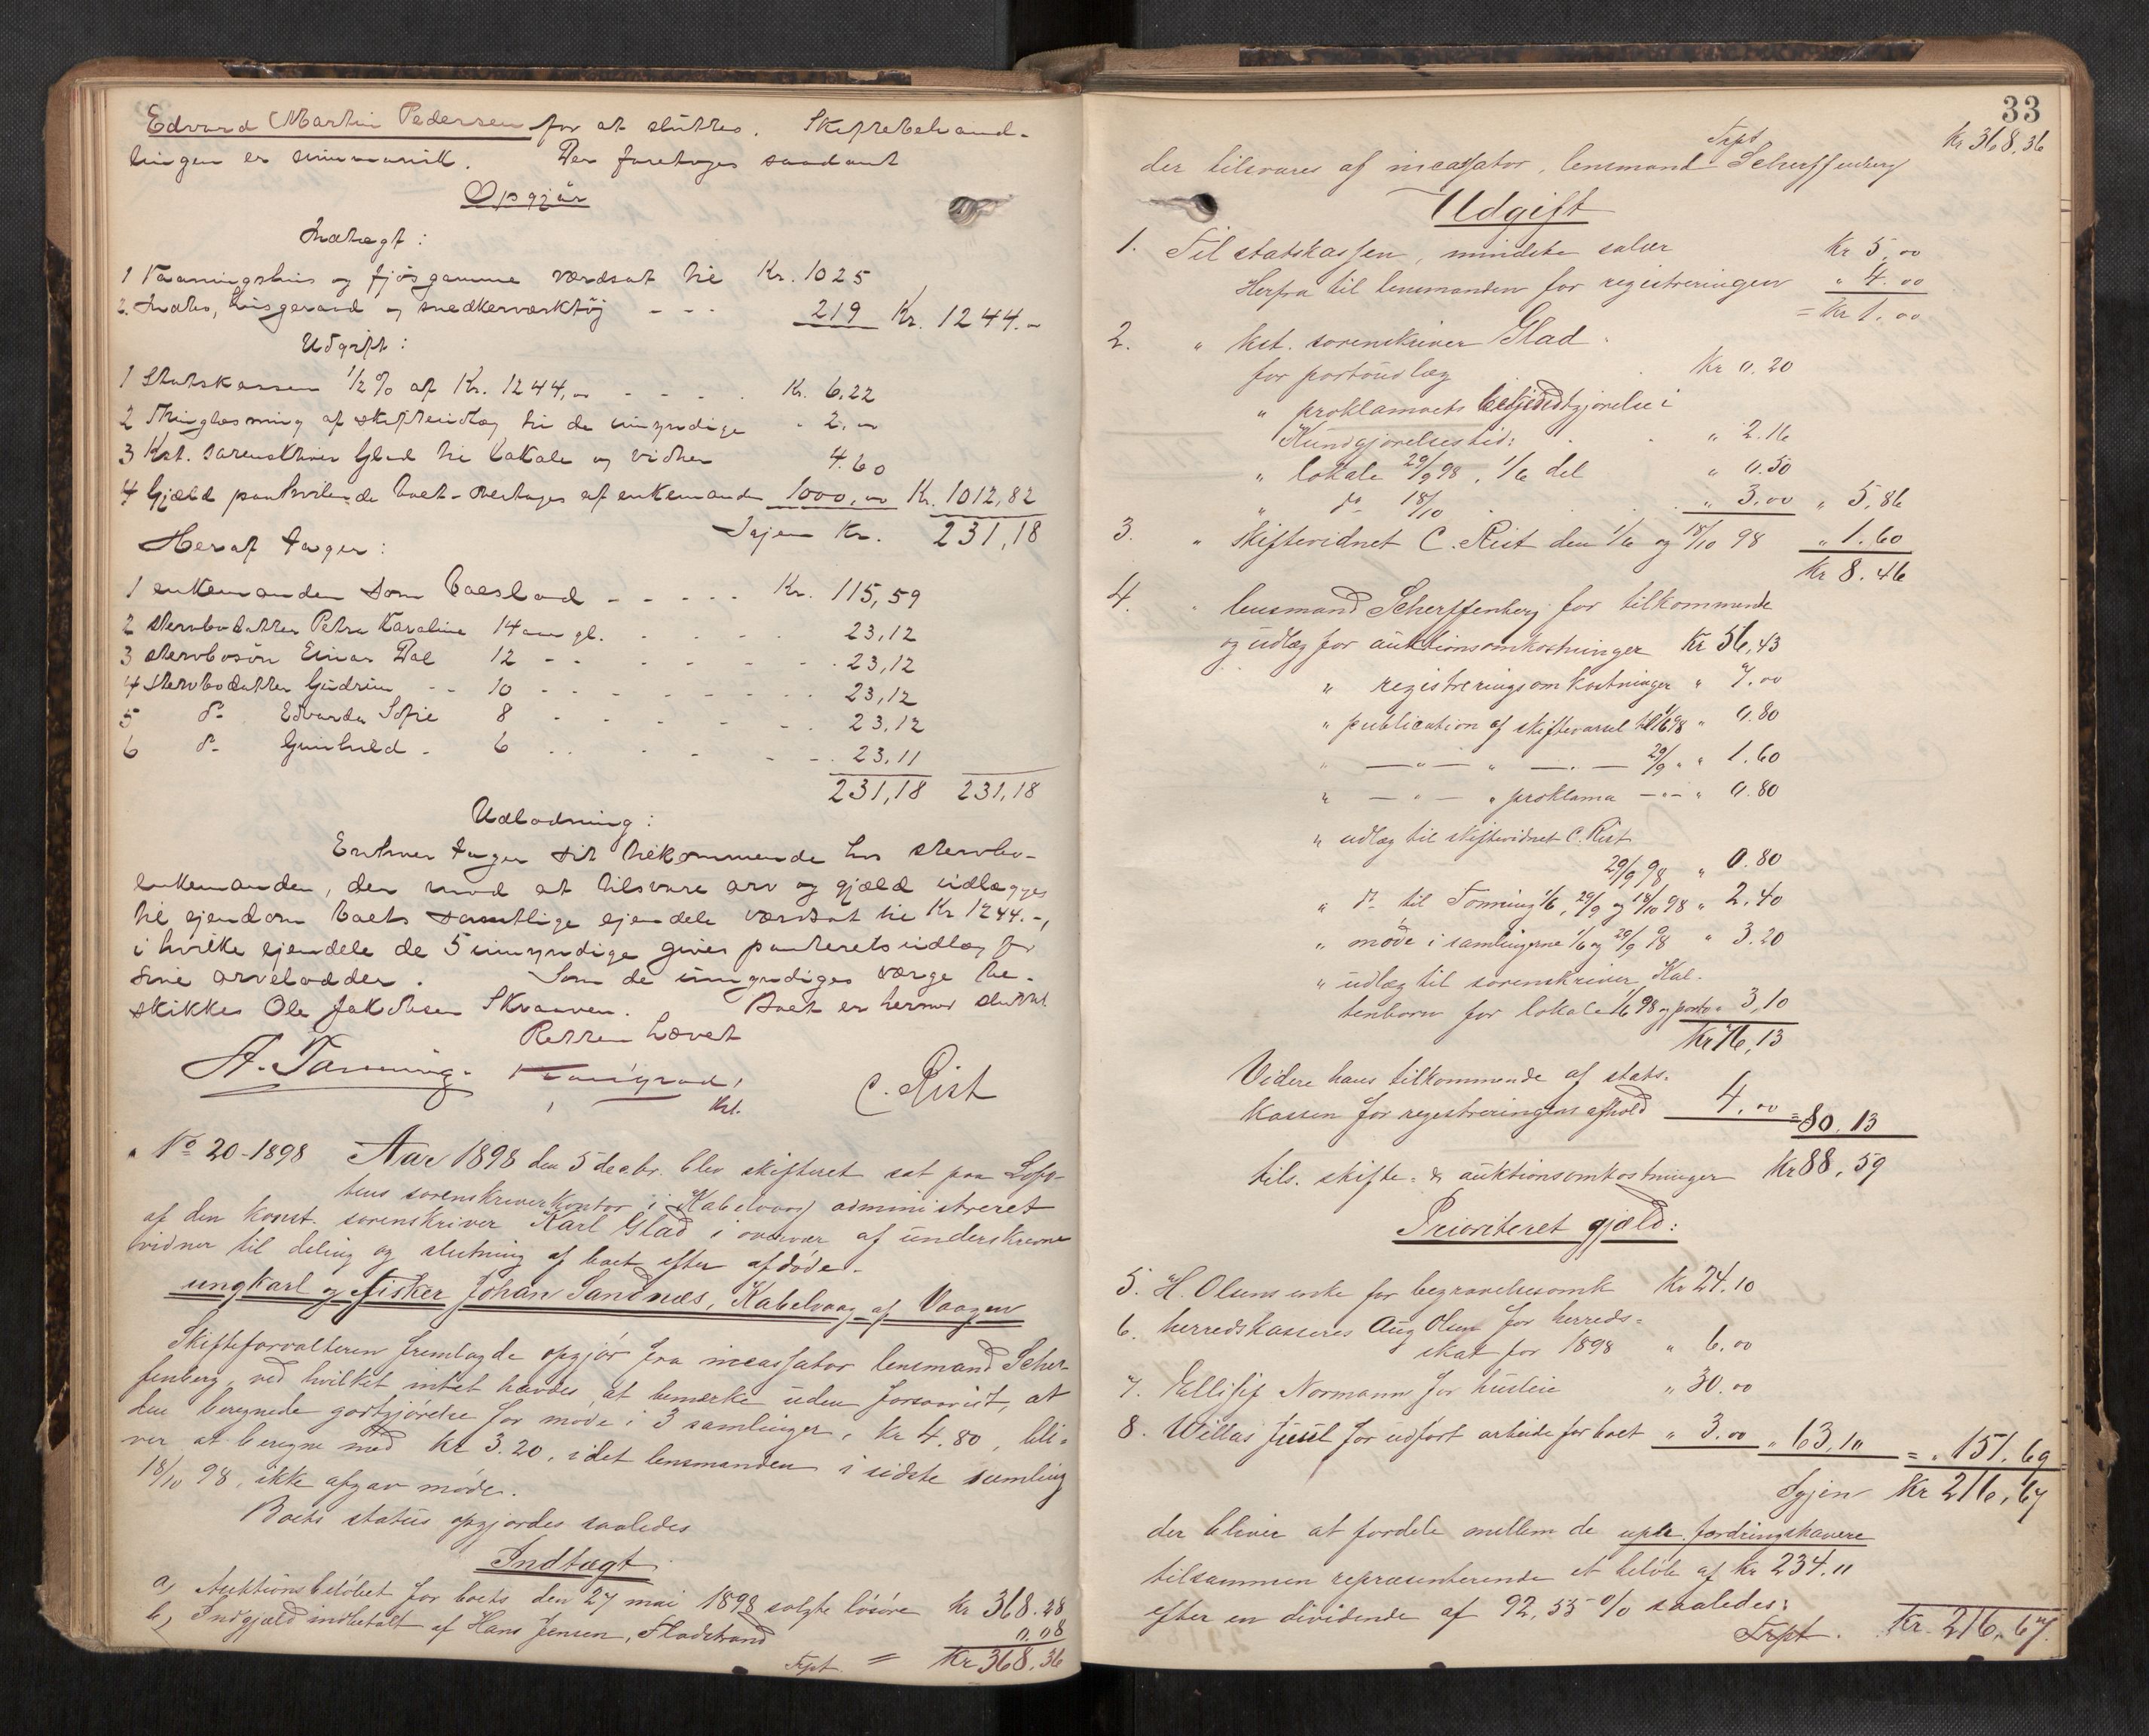 Edvard Martin Pedersen for at sluttes. Skiftebehand-
lingen er summarisk. Der foretages saadant
Opgjør
Indtægt:
1 Vaaningshus og fjøsgamme værdsat til Kr. 1025
2. Indbo, husgeraad og snedkerværktøj - - - 219 Kr. 1244.-
Udgift:
1 Statskassen 1/2 % af Kr. 1244,- - - - - Kr. 6,22
2 Thinglæsning af skifteudlæg til de umyndige " 2,-
3 Kst. sorenskriver Glad til lokale og vidner 4.60
4 Gjæld paahvilende boet - overtages af enkemanden 1000,00 Kr. 1012,82
Igjen Kr. 231,18
Heraf tager:
1 enkemanden som boeslod - - - - - Kr. 115,59
2 stervbodatter Petra Karoline 14 aar gl. 23,12
3 stervbosøn Einar Dal 12 - - 23,12
4 stervbodatter Gudrun - - 10 - - 23,12
5 do Edvarda Sofie 8 - - 23,12
6 do Gunhild - 6 - - 23,11
231,18 231,18
Udlodning:
Enhver tager sit tilkommende hos stervbo-
enkemanden, der mod at tilsvare arv og gjæld udlægges
til ejendom boets samtlige ejendele værdsat til Kr 1244.-,
i hvilke ejendele de 5 umyndige gives panterets udlæg for
sine arvelodder. Som de umyndiges værge be-
skikkes Ole Jakobsen Skraaven. Boet er hermed sluttet
Retten hævet
A. Tønning. kst. C. Rist
No 20-1898 Aar 1898 den 5 decbr. blev skifteret sat paa Lofo-
tens sorenskriverkontor i Kabelvaag administreret
af den konst. sorenskriver Karl Glad i overvær af underskrevne
vidner til deling og slutning af boet efter afdøde-
ungkarl og fisker Johan Sandnæs, Kabelvaag af Vaagen
Skifteforvalteren fremlagde opgjør fra incassator lensmand Scher-
fenberg, ved hvilket intet havdes at bemerke uden forsaavidt, at
den beregnede godtgjørelse for møde i 3 samlinger, kr 4.80, bli-
ver at beregne med kr 3.20, idet lensmanden i sidste samling
18/10 98, ikke afgav møde.
Boets status opgjordes saaledes
Indtægt
a) Auktionsbeløbet for boets den 27 mai 1898 solgte løsøre kr 368.28
b) Indgjæld indbetalt af Hans Jensen, Fladstrand 0.08
Trpt. = Kr 368.36
33
Trpt Kr 368.36
der tilsvares af incassator, lensmand Scherffenberg
Udgift
1. Til statskassen, mindste salær Kr 5.00
Herfra til lensmanden for registreringen " 4.00
= Kr 1.00
2. " kst. sorenskriver Glad
for portoudlæg Kr 0.20
" proklamaets bekjendtgjørelse i
Kundgjørelsestid: " 2.16
" lokale 29/9 98, 1/6 del " 0.50
" do 18/10 " 3.00 " 5,86
3. " skiftevidnet C. Rist den 1/6 og 18/10 98 " 1.60
Kr 8.46
4. " lensmand Scherffenberg for tilkommende
og udlæg for auktionsomkostninger Kr 56,43
" registreringsomkostninger " 7.00
" publication af skiftevarsel til 1/6 98 " 0.80
" — " — " — " — 29/9 " " 1.60
" — " — " proklama — " — " 0.80
" udlæg til skiftevidnet C. Rist
29/9 98 " 0.80
" do til Tønning 1/6, 29/9 og 18/10 98 " 2.40
" møde i samlingerne 1/6 og 29/9 98 " 3.20
" udlæg til sorenskriver Kal-
tenborn for lokale 1/6 98 og porto " 3,10
Kr 76,13
Videre hans tilkommende af stats-
kassen for registreringens afhold 4.00 = 80.13
tils. skifte- & auktionsomkostninger Kr 88,59
Prioriteret gjæld:
5. H. Olsens enke for begravelsesomk Kr 24.10
6. herredskasserer Aug Olsen for herreds-
skat for 1898 " 6.00
7. Ellisif Normann for husleie " 30.00
8. Willas Juul for udført arbeide for boet " 3.00 " 63,10 = " 151.69
Igjen Kr 216,67
der bliver at fordele mellem de upr. fordringshavere
tilsammen repræsenterende et beløb af kr 234.11
efter en dividende af 92,55 % saaledes:
Trpt. Kr. 216,67.